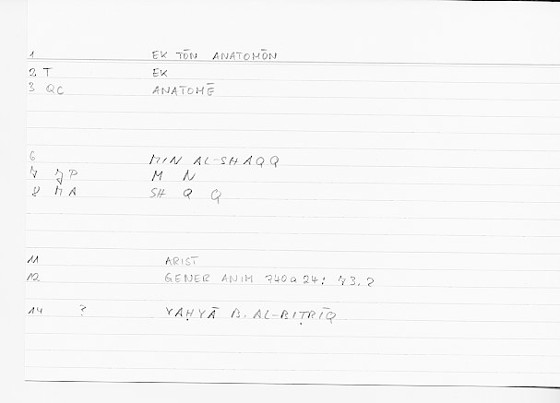 1 EK TŌN ANATOMŌN
2 T EK
3 QC ANATOMĒ
6 MIN AL-SHAQQ
7 JP M N
8 MA SH Q Q
11 ARIST
12 GENER ANIM 740a24; 73.2
14 ? YAḤYĀ B. AL-BIṬRĪQ